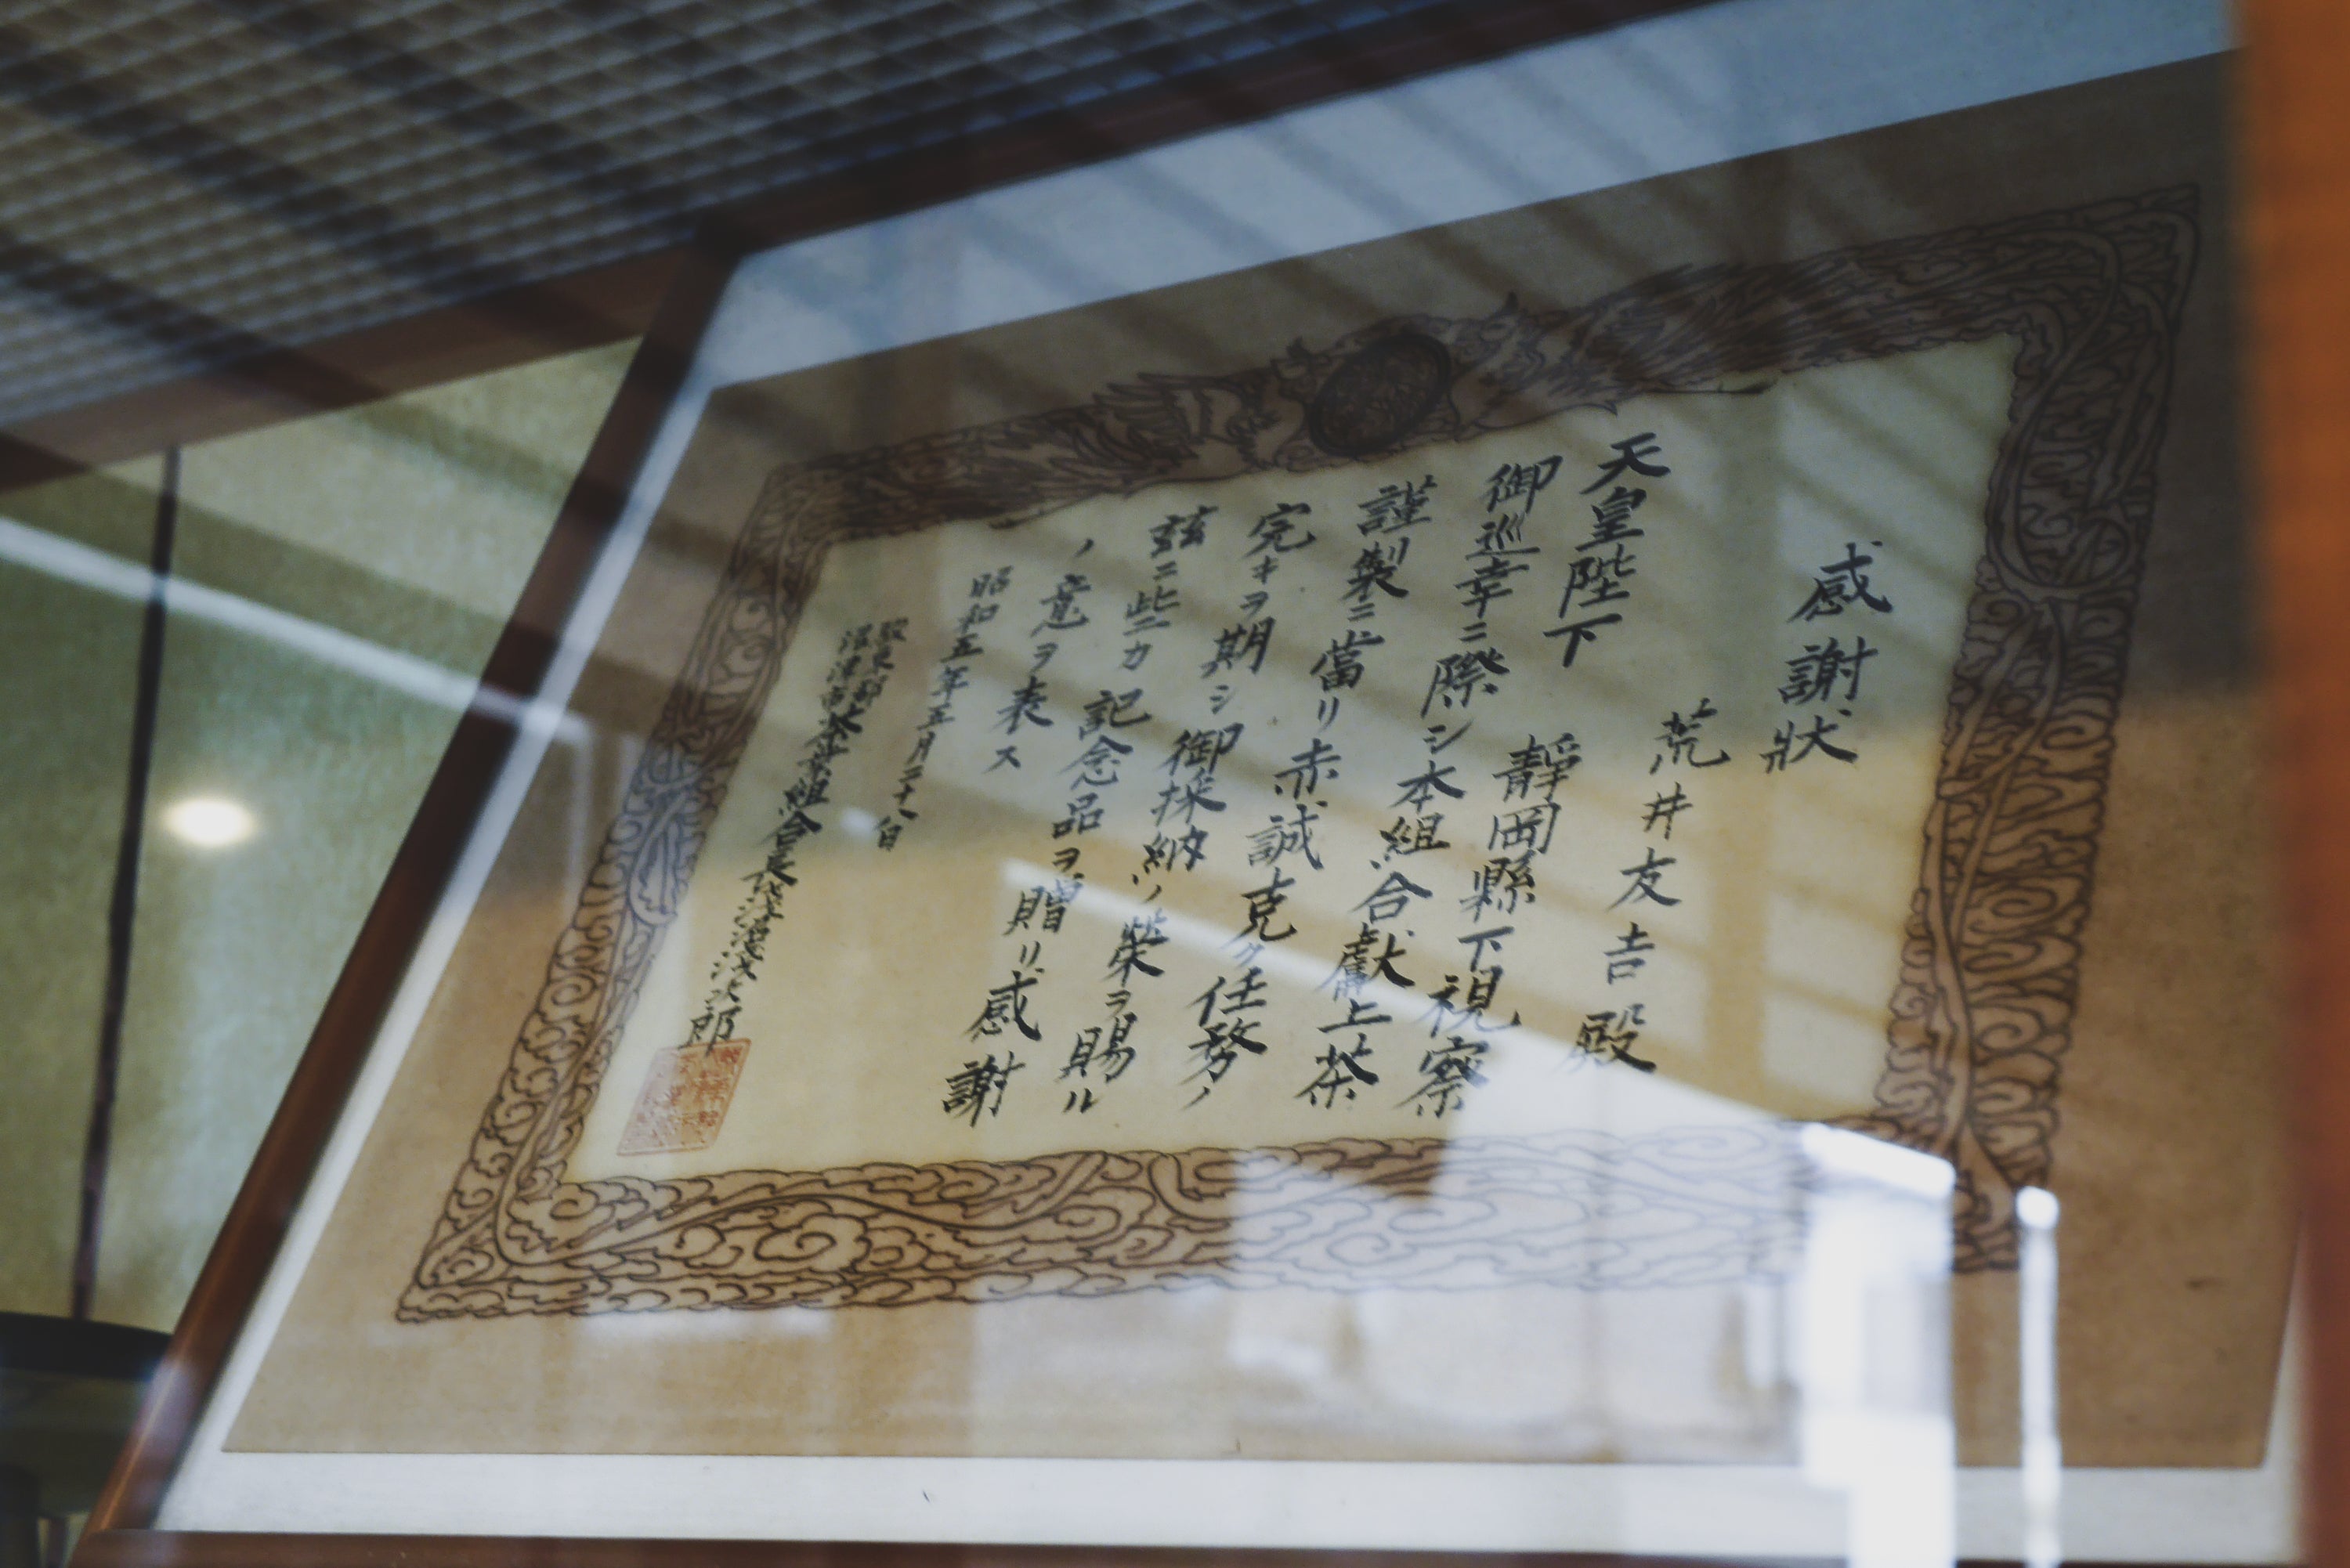 感謝狀
荒井友吉殿
天皇陛下 靜岡縣下視察
御巡幸ニ際シ本組合獻上茶
謹製ニ當リ赤誠克ク任務ノ
完キヲ期シ御採納ノ榮ヲ賜ル
玆ニ些カ記念品ヲ贈リ感謝
ノ意ヲ表ス
昭和五年五月二十八日
駿東郡
沼津市茶業組合長
次郎